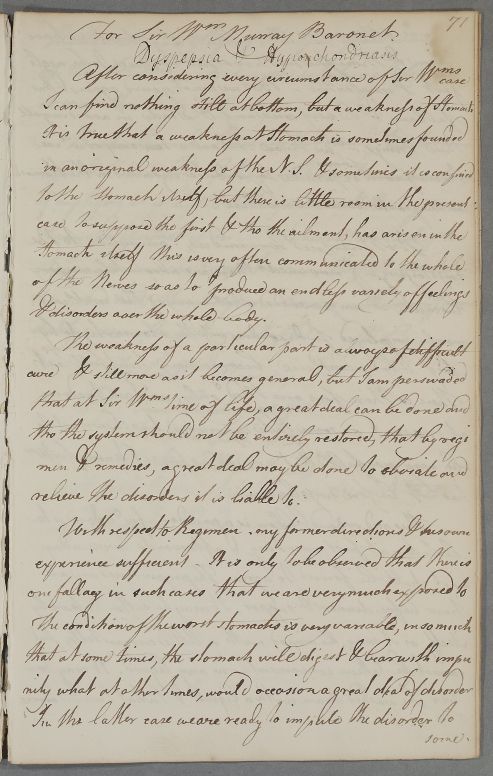 71
For Sir Wm Murray Baronet
Dyspepsia & Hypochondriasis
After considering every circumstance of Sir Wms case
I can find nothing still at bottom, but a weakness of Stomach
It is true that a weakness at Stomach is sometimes founded
in an original weakness of the N. S. & sometimes it is confined
to the Stomach itself, but there is little room in the present
case to suppose the first & tho the ailment, has arisen in the
Stomach itself this is very often communicated to the whole
of the Nerves so as to produce an endless variety of feelings
& disorders over the whole body.
The weakness of a particular part is always of difficult
cure & still more as it becomes general, but I am perswaded
that at Sir Wms time of life, a great deal can be done and
tho the system should not be entirely restored, that by regi
men & remedies, a great deal may be done to obviate and
relieve the disorders it is liable to.
With respect to Regimen my former directions & his own
experience sufficient - It is only to be observed that there is
one fallacy in such cases that we are very much exposed to
The condition of the worst stomachs is very variable, in so much
that at some times, the stomach will digest & bear with impu
nity what at other times, would occasion a great deal of disorder
In the latter case we are ready to impute the disorder to
some